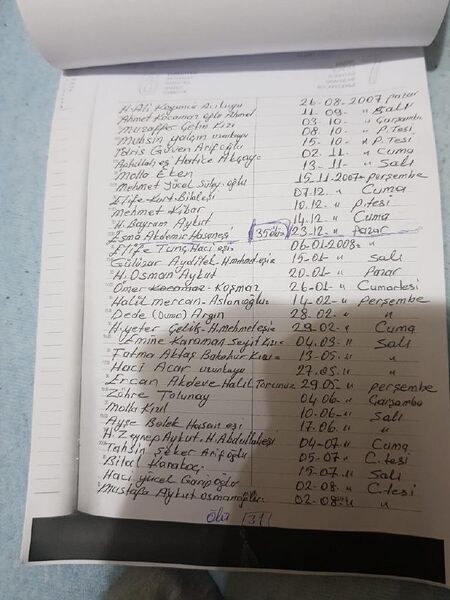 H. Ali Koşumcu Acıkuyu 26-08-2007 pazar
Ahmet Kocaman oğlu Ahmet 11-09- " Salı
Muzaffer Çetin Kızı 03-10- " Çarşamba
Muhsin yalçın uzunkuyu 08-10- " P.Tesi
İdris Güven Arifoğlu 15-10- " P.Tesi
Abdullah eş Hatice Akçay 02-11- " Cuma
Molla Eken 13-11- " Salı
Mehmet Yücel Süley.oğlu 15.11-2007- perşembe
Elife Kurt-Bilalesi 07.12- " Cuma
Mehmet Kibar 10.12- " p.tesi
H. Bayram Aykut 14-12- " Cuma
Esma Akdemir Hasaneşi 35 ölü 23-12- " pazar
Elife Tunç Hacı eşi 06-01-2008- "
Gülüzar Aydilek-H.mehmet eşi 15-01- " Salı
H. Osman Aykut 20-01- " Pazar
Ömer Kocaman - Koşmaz 26-01- " Cumartesi
Halil mercan-Aslanoğlu 14-02- " perşembe
Dede (Duran) Argın 28-02- " "
H. yeter Çelik-H.mehmet eşi 29-02- " Cuma
Emine Karaman Seyit Kızı 04.03- " Salı
Fatma Aktaş Bakahur Kızı 13-05- " "
Hacı Acar uzunkuyu 27.05- " "
Ercan Akdeve Halil Torunu 29.05- " perşembe
Zöhre Tolunay 04-06- " Çarşamba
Molla Kızıl 10-06- " Salı
Ayşe Bölek Hasan eşi 17.06- " "
H. Zeynep Aykut-H. Abdullah eşi 04-07- " Cuma
Tahsin Şeker Arifoğlu 05-07- " C.tesi
Bilal Karakoç 15-07- " Salı
Hacı yücel Garipoğlu 02-08- " C.tesi
Mustafa Aykut Osmanoğlu 02-08- " "
ölü 31